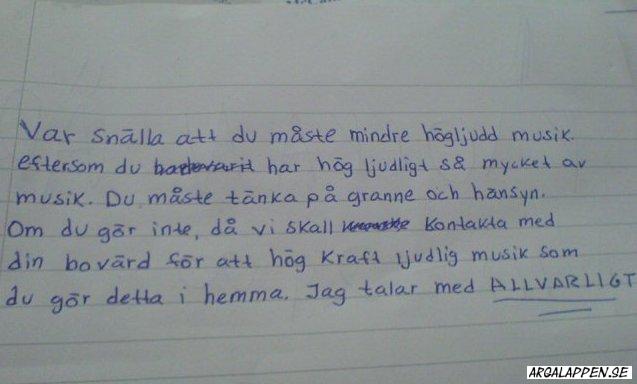 Var snälla att du måste mindre högljudd musik.
eftersom du har hög ljudligt så mycket av
musik. Du måste tänka på granne och hänsyn.
Om du gör inte, då vi skall kontakta med
din bovärd för att hög kraft ljudlig musik som
du gör detta i hemma. Jag talar med ALLVARLIGT
ARGALAPPEN.SE